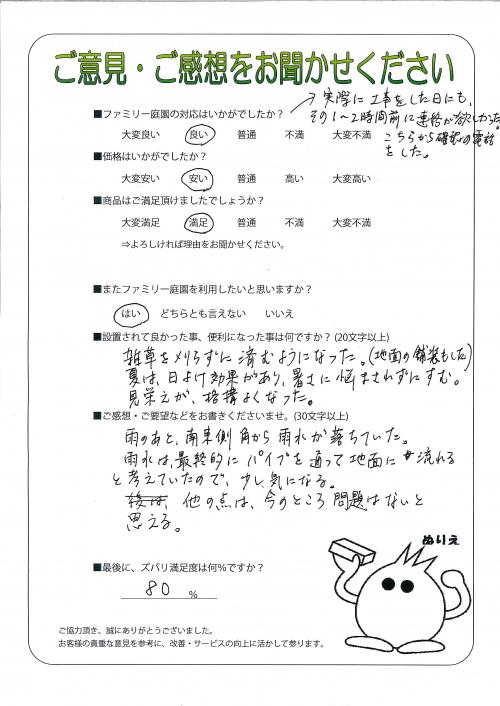 ご意見・ご感想をお聞かせください
■ファミリー庭園の対応はいかがでしたか？
→実際に工事をした日にも、
その1〜2時間前に連絡が欲しかった。
こちらから確認の電話
をした。
大変良い 良い 普通 不満 大変不満
■価格はいかがでしたか？
大変安い 安い 普通 高い 大変高い
■商品はご満足頂けましたでしょうか？
大変満足 満足 普通 不満 大変不満
⇒よろしければ理由をお聞かせください。
■またファミリー庭園を利用したいと思いますか？
はい どちらとも言えない いいえ
■設置されて良かった事、便利になった事は何ですか？(20文字以上)
雑草を刈らずに済むようになった。(地面の舗装もした)
夏は、日よけ効果があり、暑さに悩まされずにすむ。
見栄えが、格構よくなった。
■ご感想・ご要望などをお書きくださいませ。(30文字以上)
雨のあと、南東側角から雨水が落ちていた。
雨水は、最終的にパイプを通って地面に流れる
と考えていたので、少し気になる。
他の点は、今のところ問題はないと
思える。
■最後に、ズバリ満足度は何％ですか？
80 %
ぬりえ
ご協力頂き、誠にありがとうございました。
お客様の貴重な意見を参考に、改善・サービスの向上に活かして参ります。